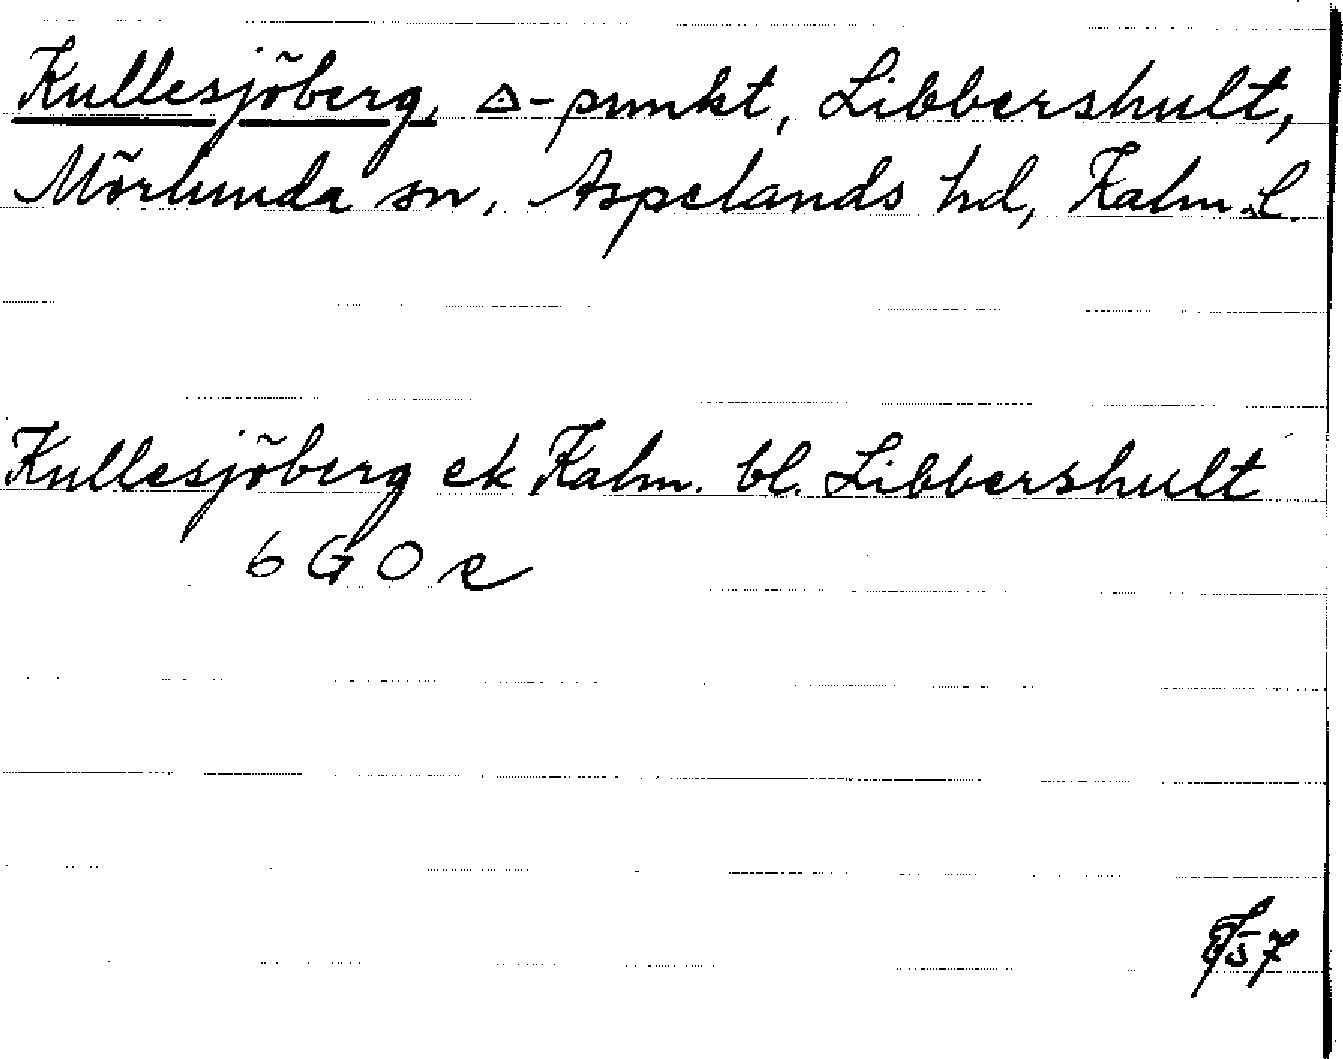 Kullesjöberg, △-punkt, Libbershult,
Mörlunda sn, Aspelands hd, Kalm. L.
Kullesjöberg ek Kalm. bl. Libbershult
6 G O c
57